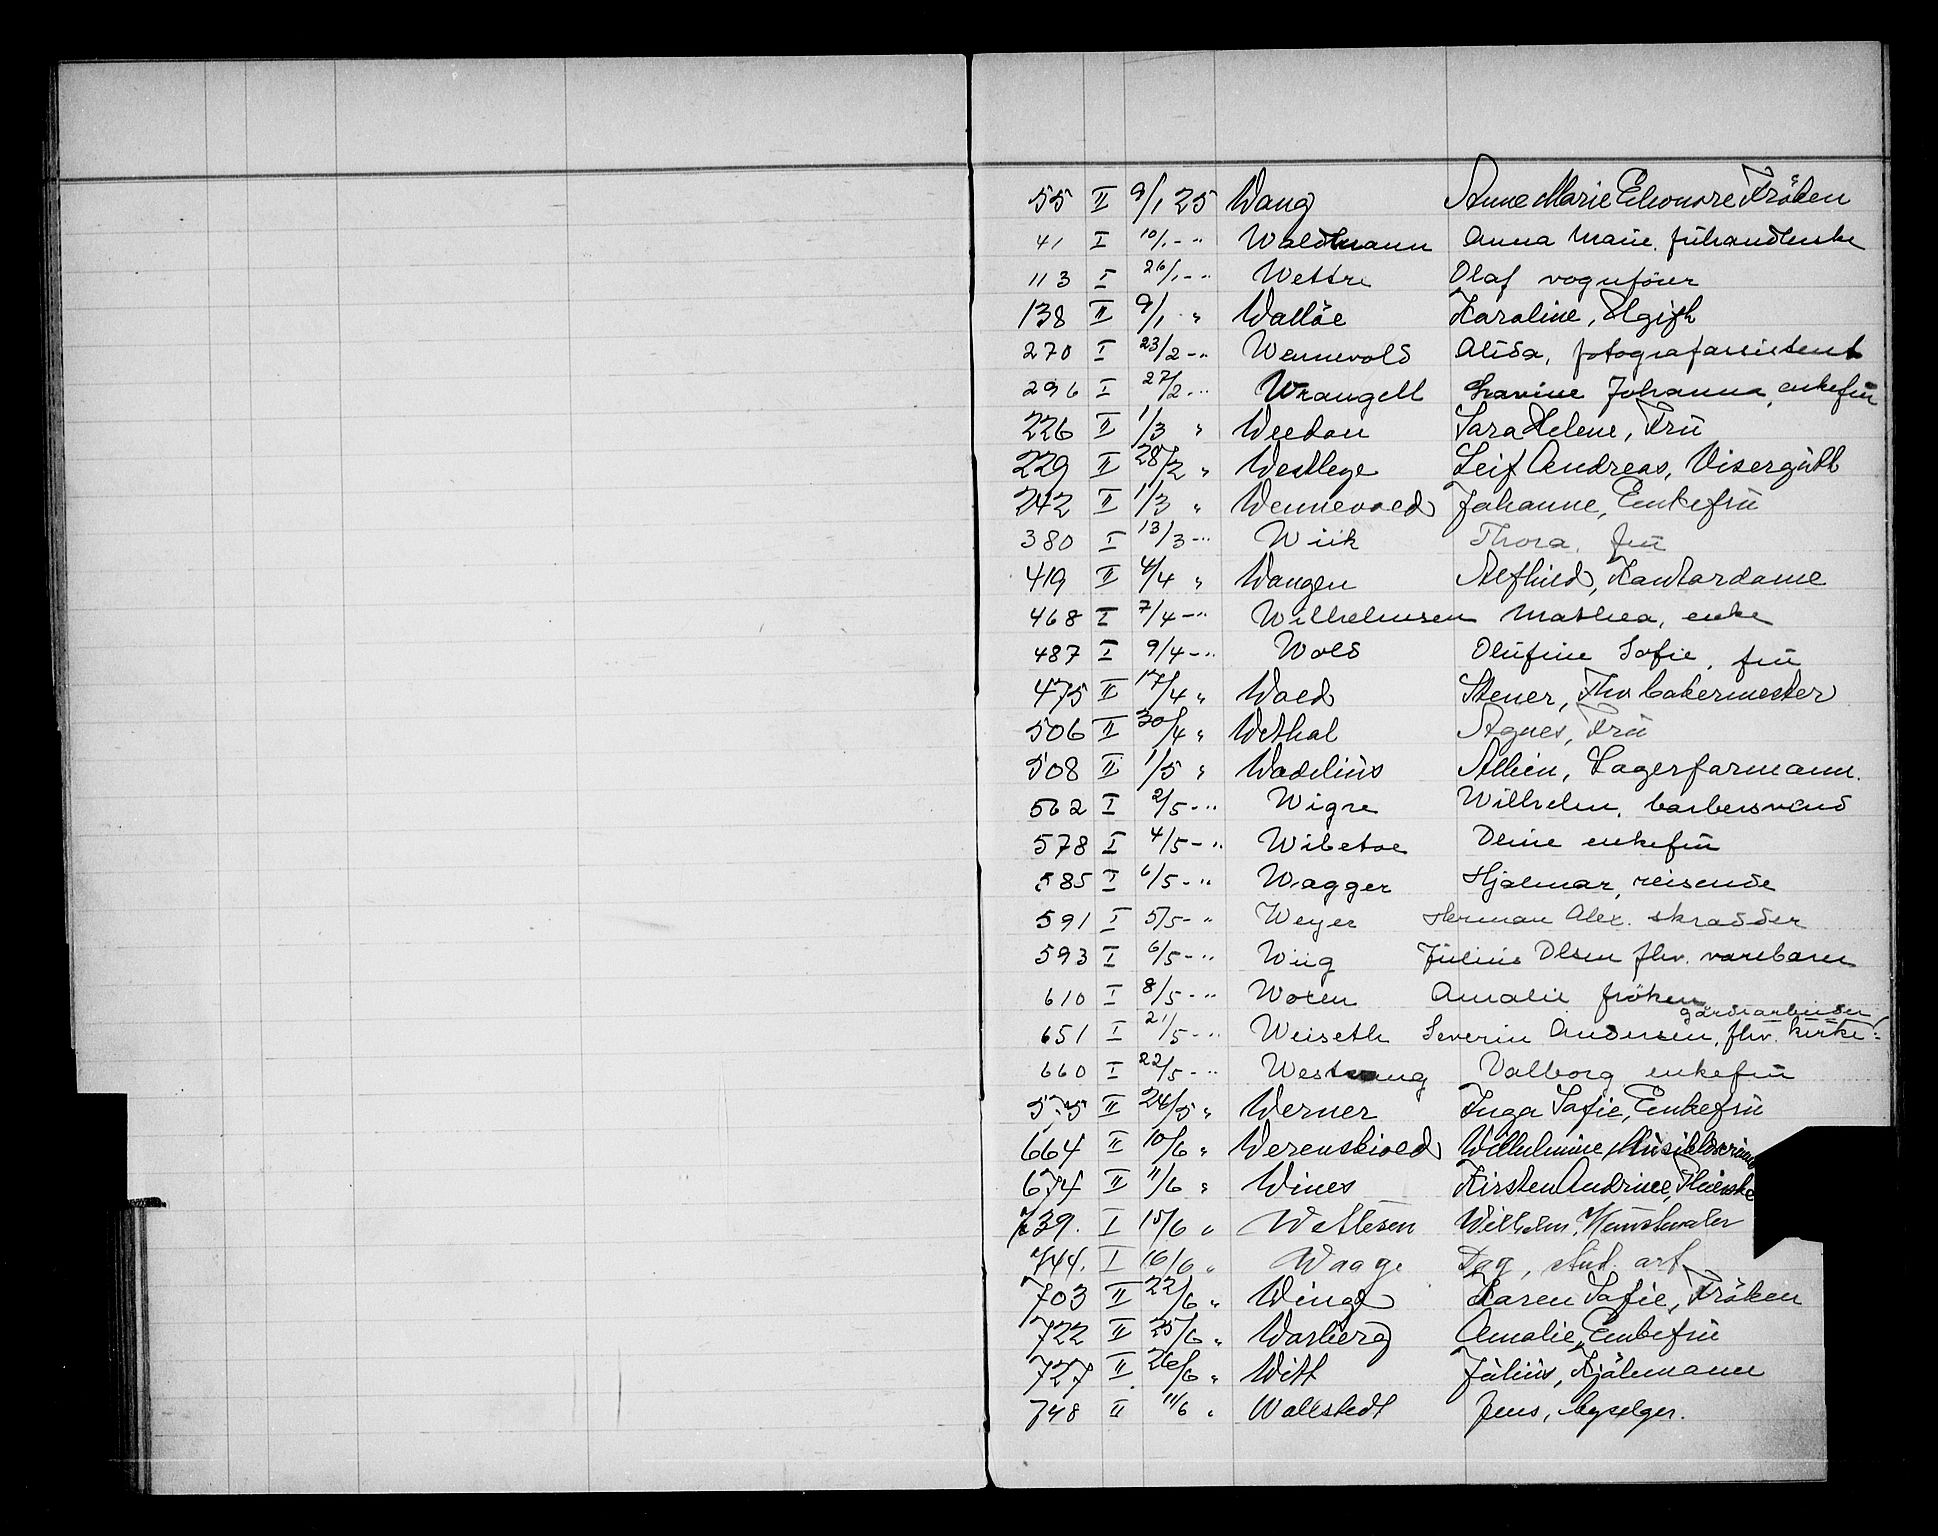 55 II 9/1 25 Wang Anne Marie Eleonore Fröken
41 I 10/1 - " Waldmann Anna Marie
113 I 26/1 - " Wettre Olaf vognförer
138 II 9/1 " Wallöe Karoline, Ugift
270 I 23/2 - " Wennevold Alida, fotografassistent
296 I 27/2 - " Wrangell Lavine Johanna, enkefru
226 II 1/3 " Weedon Sara Helene, Frü
229 II 28/2 " Westlye Leif Andreas, Visergütt
242 II 1/3 " Wennevold Johanne, Enkefrü
380 I 13/3 - " Wiik Thora, frü
419 II 4/4 " Wangen Alfhild, Kontordame
468 I 7/4 - " Wilhelmsen Mathea, enke
487 I 9/4 - " Wold Olüfine Sofie, frü
475 II 17/4 " Wold Stener, Fhv bakermester
506 II 30/4 " Wethal Agnes, Frü
508 II 1/5 " Wadelius Albin, Lagerformann.
562 I 2/5 - " Wigre Wilhelm, barbersvend
578 I 4/5 - " Wibetoe Deine enkefrü
585 I 6/5 - " Wagger Hjalmar, reisende
591 I 5/5 - " Weyer Herman Alex. skrædder
593 I 6/5 - " Wiig Jülius Olsen fhv. varebærer
610 I 8/5 - " Woxen Amalie fröken
gårdsarbeider
651 I 21/5 - " Weiseth Severin Andersen, fhv. kirke-
660 I 22/5 - " Westvang Valborg enkefrü
575 II 24/5 " Werner Inga Sofie, Enkefrü
664 II 10/6 " Werenskiold Wilhelmine
674 II 11/6 " Wines Kirsten Andrine,
739. I 15/6 " Wetlesen Wilhelm, Künstmaler
744. I 16/6 " Waage Dag, stud. art.
703 II 22/6 " Winge Karen Sofie, Fröken
722 II 25/6 " Warberg Amalie, Enkefrü
727 II 26/6 " Witt Jülius, Kjölemann
748 II 11/6 " Wallstedt Jens, byselger.